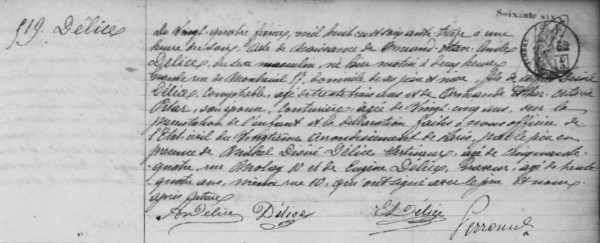 Soixante six
519. Délice
Le Vingt-quatre février, mil huit cent soixante treize à une
heure du soir. Acte de Naissance de
Délice, du sexe masculin, né hier matin à deux heures
rue de Montreuil domicile de ses père et mère. fils de
Délice, Comptable, agé de trente trois ans et de Octavie
son épouse, couturière, agée de Vingt cinq ans, sur la
présentation de l'enfant et la déclaration faite à nous officier de
l'Etat civil du Vingtième Arrondissement de Paris, par le père en
présence de Désiré Délice agé de Cinquante
quatre, rue Molay 10 et de Eugène Délice, Graveur, agé de trente
quatre ans, même rue 10, qui ont signé avec le père et nous
après lecture
Délice Délice Délice